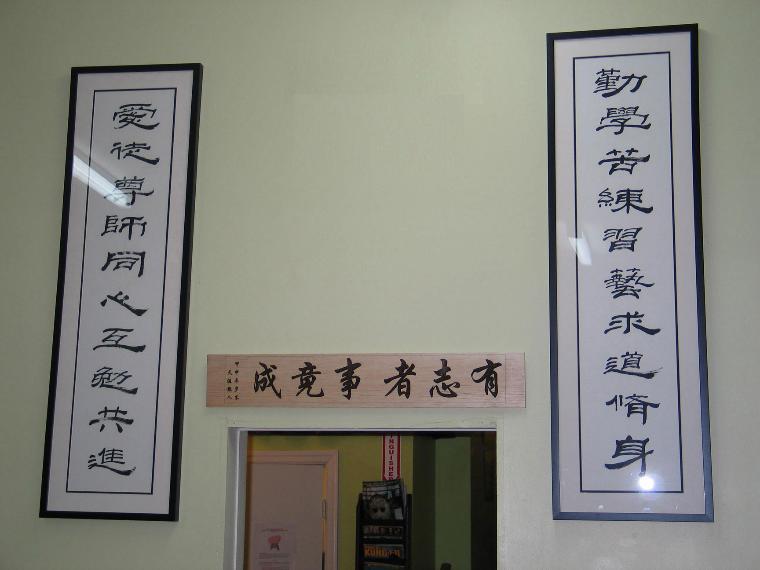 勤學苦練習藝求道脩身
愛徒尊師同心互勉共進
有志者事竟成
KUNG-FU